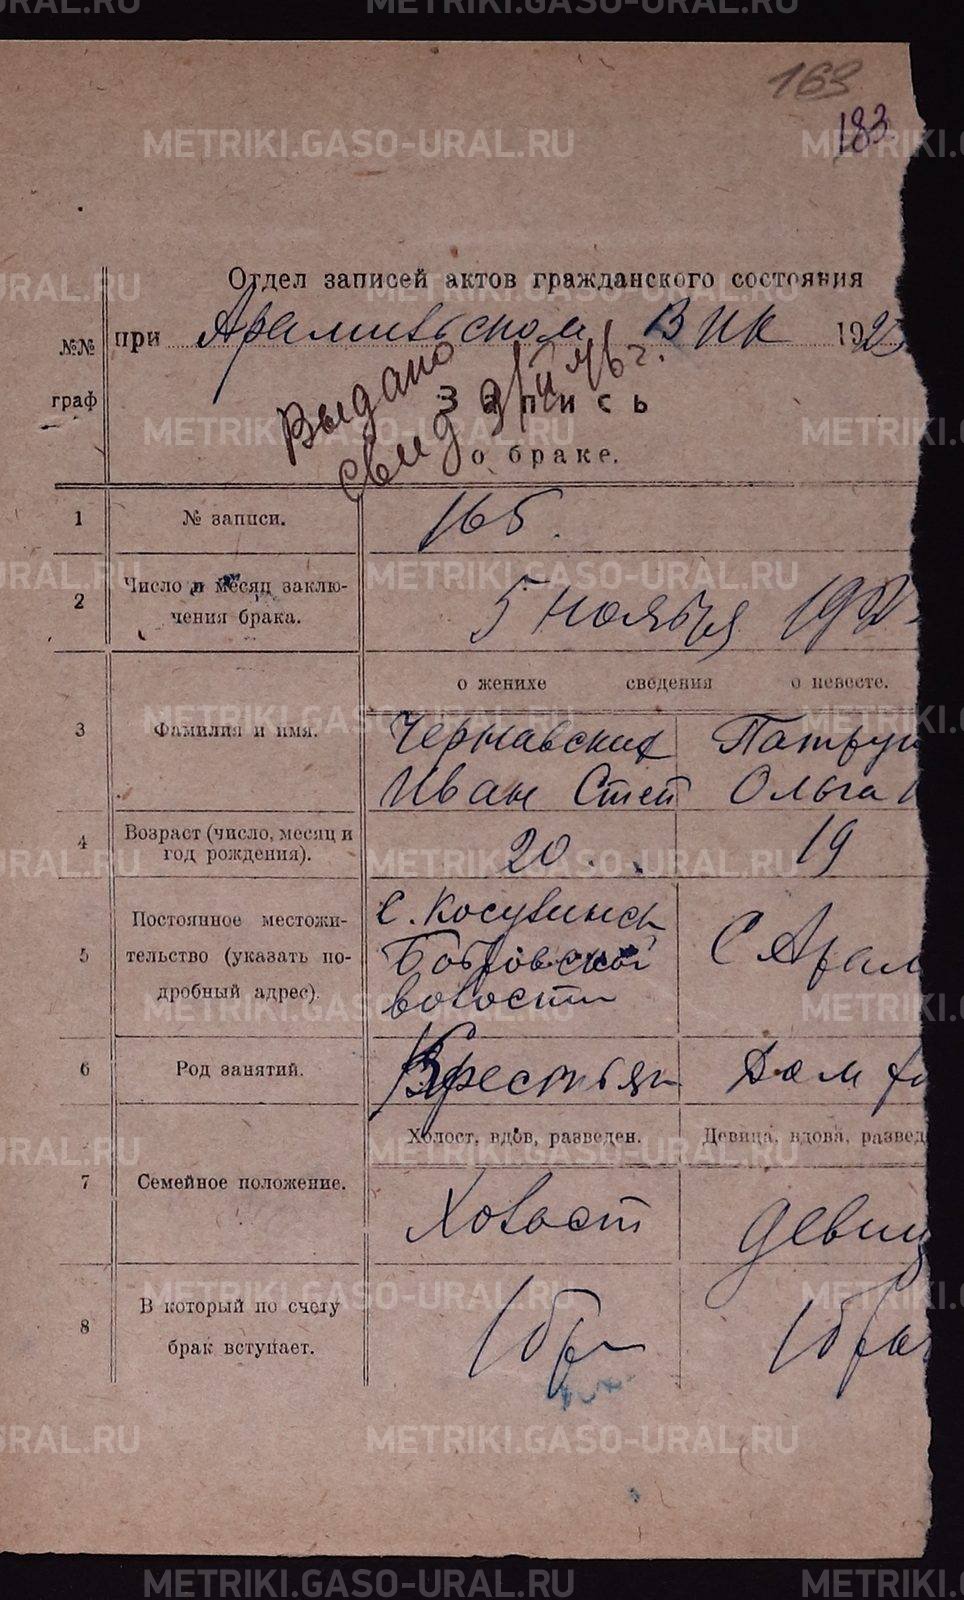 163
183
Отдел записей актов гражданского состояния
№№ граф
при Арамильском ВИК 192
Выдано
свид 9/II 46 г.
Запись
о браке.
1 № записи. 165.
2 Число и месяц заклю-
чения брака. 5 ноября 192
о женихе сведения о невесте.
3 Фамилия и имя. Чернавских Патруш
Иван Степ Ольга
4 Возраст (число, месяц и
год рождения). 20. 19
5 Постоянное местожи-
тельство (указать по-
дробный адрес).
с. Косулинск
Бобровской
волости
С Арам
6 Род занятий. Крестьян Дом
Холост, вдов, разведен. Девица, вдова, развед
7 Семейное положение. Холост девиц
8 В который по счету
брак вступает. 1 бр 1 бра
METRIKI.GASO-URAL.RU